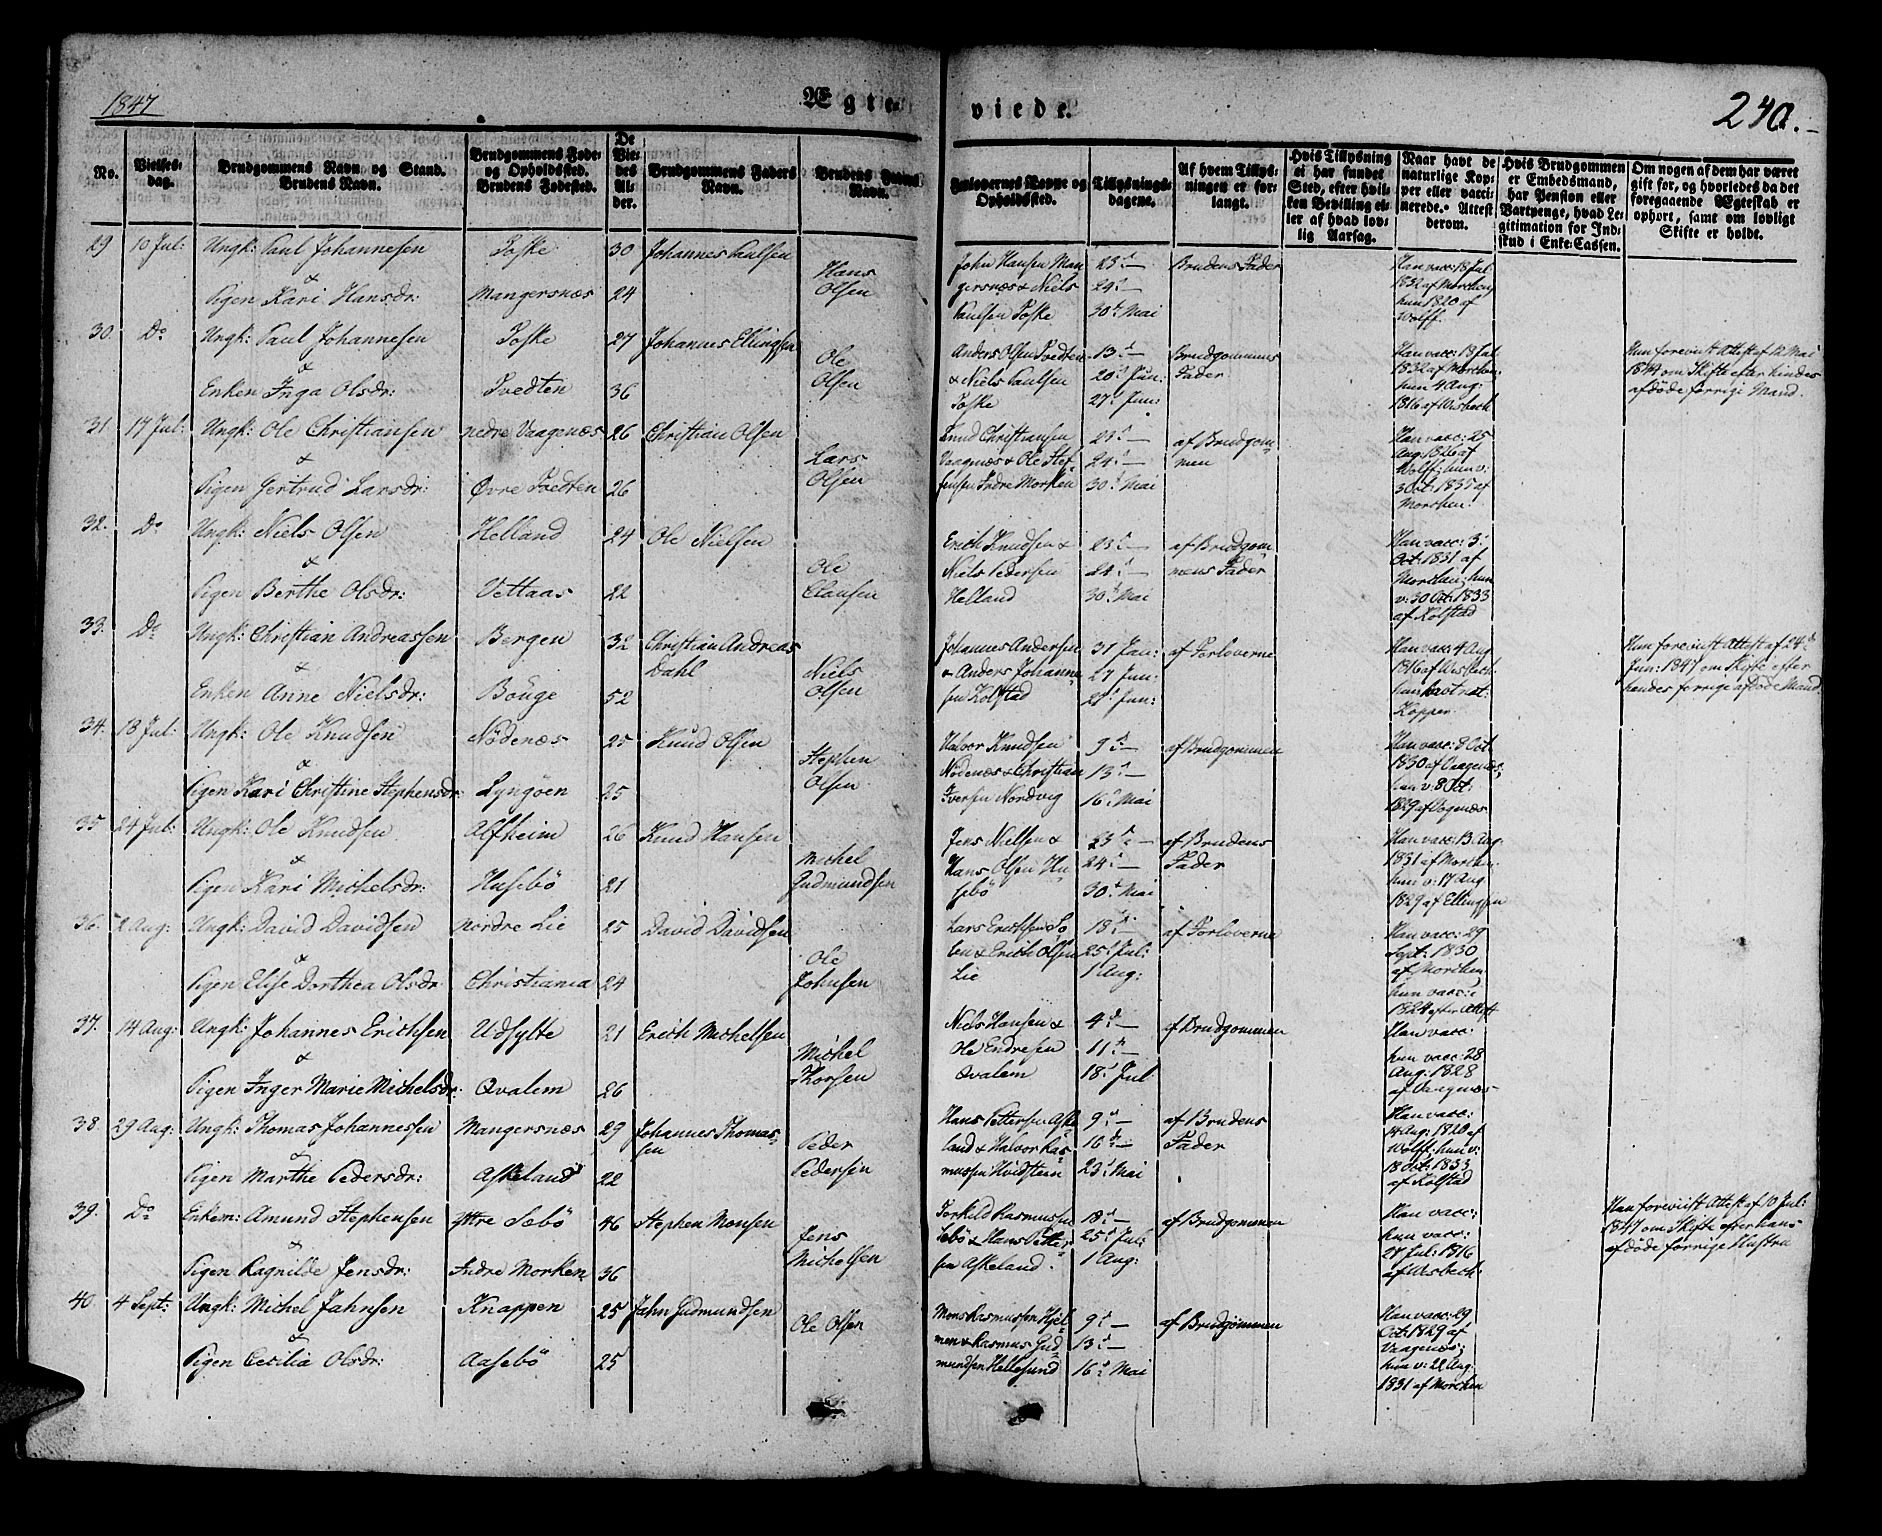 1847
Ægte-
viede.
240.
No.
Vielses-
dag.
Brudgommens Navn og Stand.
Brudens Navn.
Brudgommens Føde-
og Opholdssted.
Brudens Fødested.
De
Vie-
des
Al-
der.
Brudgommens Faders
Navn.
Brudens Faders
Navn.
Forlovernes Navne og
Opholdssted.
Tillysnings-
dagene.
Af hvem Tillys-
ningen er for-
langt.
Hvis Tillysning
ei har fundet
Sted, efter hvil-
ken Bevilling el-
ler af hvad lov-
lig Aarsag.
Naar havt de
naturlige Kop-
per eller vacci-
nerede. Attest
derom.
Hvis Brudgommen
er Embedsmand,
har Pension eller
Vartpenge, hvad Le-
gitimation for Ind-
skud i Enke-Cassen.
Om nogen af dem har været
gift før, og hvorledes da det
foregaaende Ægteskab er
ophørt, samt om lovligt
Skifte er holdt.
29 10 Jul: Ungk: Paul Johannesen Toske 30 Johannes Paulsen
&
Hans
Olsen
Pigen Kari Hansdr: Mangersnæs 24
John Hansen Man 23d — Brudens Fader
gersnæs & Niels 24d —
Paulsen Toske 30d Mai
Han vacc: 18 Jul
1832 af Morchen,
hun 1820 af
Wolff.
30. Do Ungk: Paul Johannesen Toske 27 Johannes Ellingsen
&
Ole
Olsen
Enken Inga Olsdr: Tvedten 36
Anders Olsen Tvedten 13d — Brudgommens
& Niels Paulsen 20d Jun: Fader
Toske 27d Jun:
Han vacc: 13 Jul
1832 af Morchen:
hun 4 Aug:
1816 af Wisbech
Hun foreviist Attest af 12 Mai
1844 om Skifte efter hindes
afdøde forrige Mand.
31 17 Jul: Ungk: Ole Christiansen nedre Vaagenæs 26 Christian Olsen
&
Lars
Olsen
Pigen Gertrud Larsdr: Øvre Tvedten 26
Knud Christiansen 23d — af Brudgom
Vaagnæs & Ole Stef- 24d — men
fensen Indre Morken 30d Mai
Han vacc: 25
Aug: 1826 af
Wolff; hun v:
3 Oct: 1835 af
Morchen.
32. Do Ungk: Niels Olsen Helland 24 Ole Nielsen
&
Ole
Clausen
Pigen Berthe Olsdr: Vettaas 22
Erich Knudsen & 23d — af Brudgom
Niels Pedersen 24d — mens Fader
Helland 30d Mai
Han vacc: 3:
Oct: 1831 af
Morchen; hun
v: 30 Oct: 1833
af Kolstad
33. Do Ungk: Christian Andreassen Bergen 32 Christian Andreas
& Dahl
Niels
Olsen
Enken Anne Nielsdr: Bouge 52
Johannes Andersen 31 Jan: af Forloverne
& Anders Johanne 27 Jun:
sen Kolstad 28d Jun:
Han vacc: 4 Aug
1816 af Wisbech
hun havt nat:
Kopper.
Hun foreviist Attest af 24d
Jun: 1847 om Skifte efter
hendes forrige afdøde Mand
34. 18 Jul: Ungk: Ole Knudsen Nödenæs 25 Knud Olsen
&
Stephen
Olsen
Pigen Kari Christine Stephensdr: Lyngöen 25
Halvor Knudsen 9d — af Brudgommen
Nödenæs & Christian 13d —
Iversen Nordvig 16d Mai
Han vacc: 8 Oct
1830 af Vaagenæs,
hun v: 8 Oct:
1829 af Vogenæs
35. 24 Jul: Ungk: Ole Knudsen Alfheim 26 Knud Hansen
&
Michel
Gudmundsen
Pigen Kari Michelsdr: Husebö 21
Jens Nielsen & 23d — af Brudens
Hans Olsen Hu 24d — Fader
sebö 30d Mai
Han vacc: 13. Aug:
1831 af Morchen:
hun v: 17 Aug:
1829 af Ellingsen
36. 2 Aug: Ungk: David Davidsen nordre Lie 25 David Davidsen
&
Ole
Johnsen
Pigen Elise Dorthea Olsdr Christiania 24
Lars Erichsen So 18d — af Forloverne
ten & Erich Olsen 25d Jul:
Lie 1 Aug:
Han vacc: 29
Sept: 1830
af Morchen
hun vacc:
1824 efter Attest
37. 14 Aug: Ungk: Johannes Erichsen Udsylte 21 Erich Michelsen
&
Michel
Thorsen
Pigen Inger Marie Michelsdr: Qvalem 26
Niels Hansen & 4d — af Brudgommen
Ole Endresen 11d —
Qvalem 18d Jul
Han vacc:
hun vacc: 28
Aug: 1828
af Vaagenæs
38. 29 Aug: Ungk: Thomas Johannesen Mangersnæs 29 Johannes Thomas-
& sen
Peder
Pedersen
Pigen Marthe Pedersdr: Askeland 22
Hans Pettersen Aske 9d — af Brudens
land & Halvor Ras- 16d — Fader
mussen Hvidsteen 23d Mai
Han vacc:
14 Aug: 1820 af
Wolff: hun v:
18 Oct: 1833
af Kolstad
39. Do Enkem: Amund Stephensen Yttre Sæbö 46 Stephen Monsen
&
Jens
Michelsen
Pigen Ragnilde Jensdr: Indre Morken 36
Torkild Rasmussen 18d — af Brudgommen
Sæbö & Hans Petter 25d Jul:
sen Askeland. 1 Aug:
Han vacc:
hun vacc:
27 Jul: 1816
af Wisbech:
Han foreviist Attest af 10 Jul:
1847 om Skifte efter hans
afdøde forrige Hustru
40 4 Sept: Ungk: Michel Jahnsen Knappen 25 Jahn Gudmundsen
&
Ole Olsen
Pigen Cecilia Olsdr: Aasebö 25
Mons Rasmussen Hjel 9d — af Brudgommen
men & Rasmus Gud 13d —
mundsen Hellesund 16d Mai
Han vacc: 29
Oct: 1829 af
Vaagenæs;
hun v: 22 Aug:
1831 af Morchen